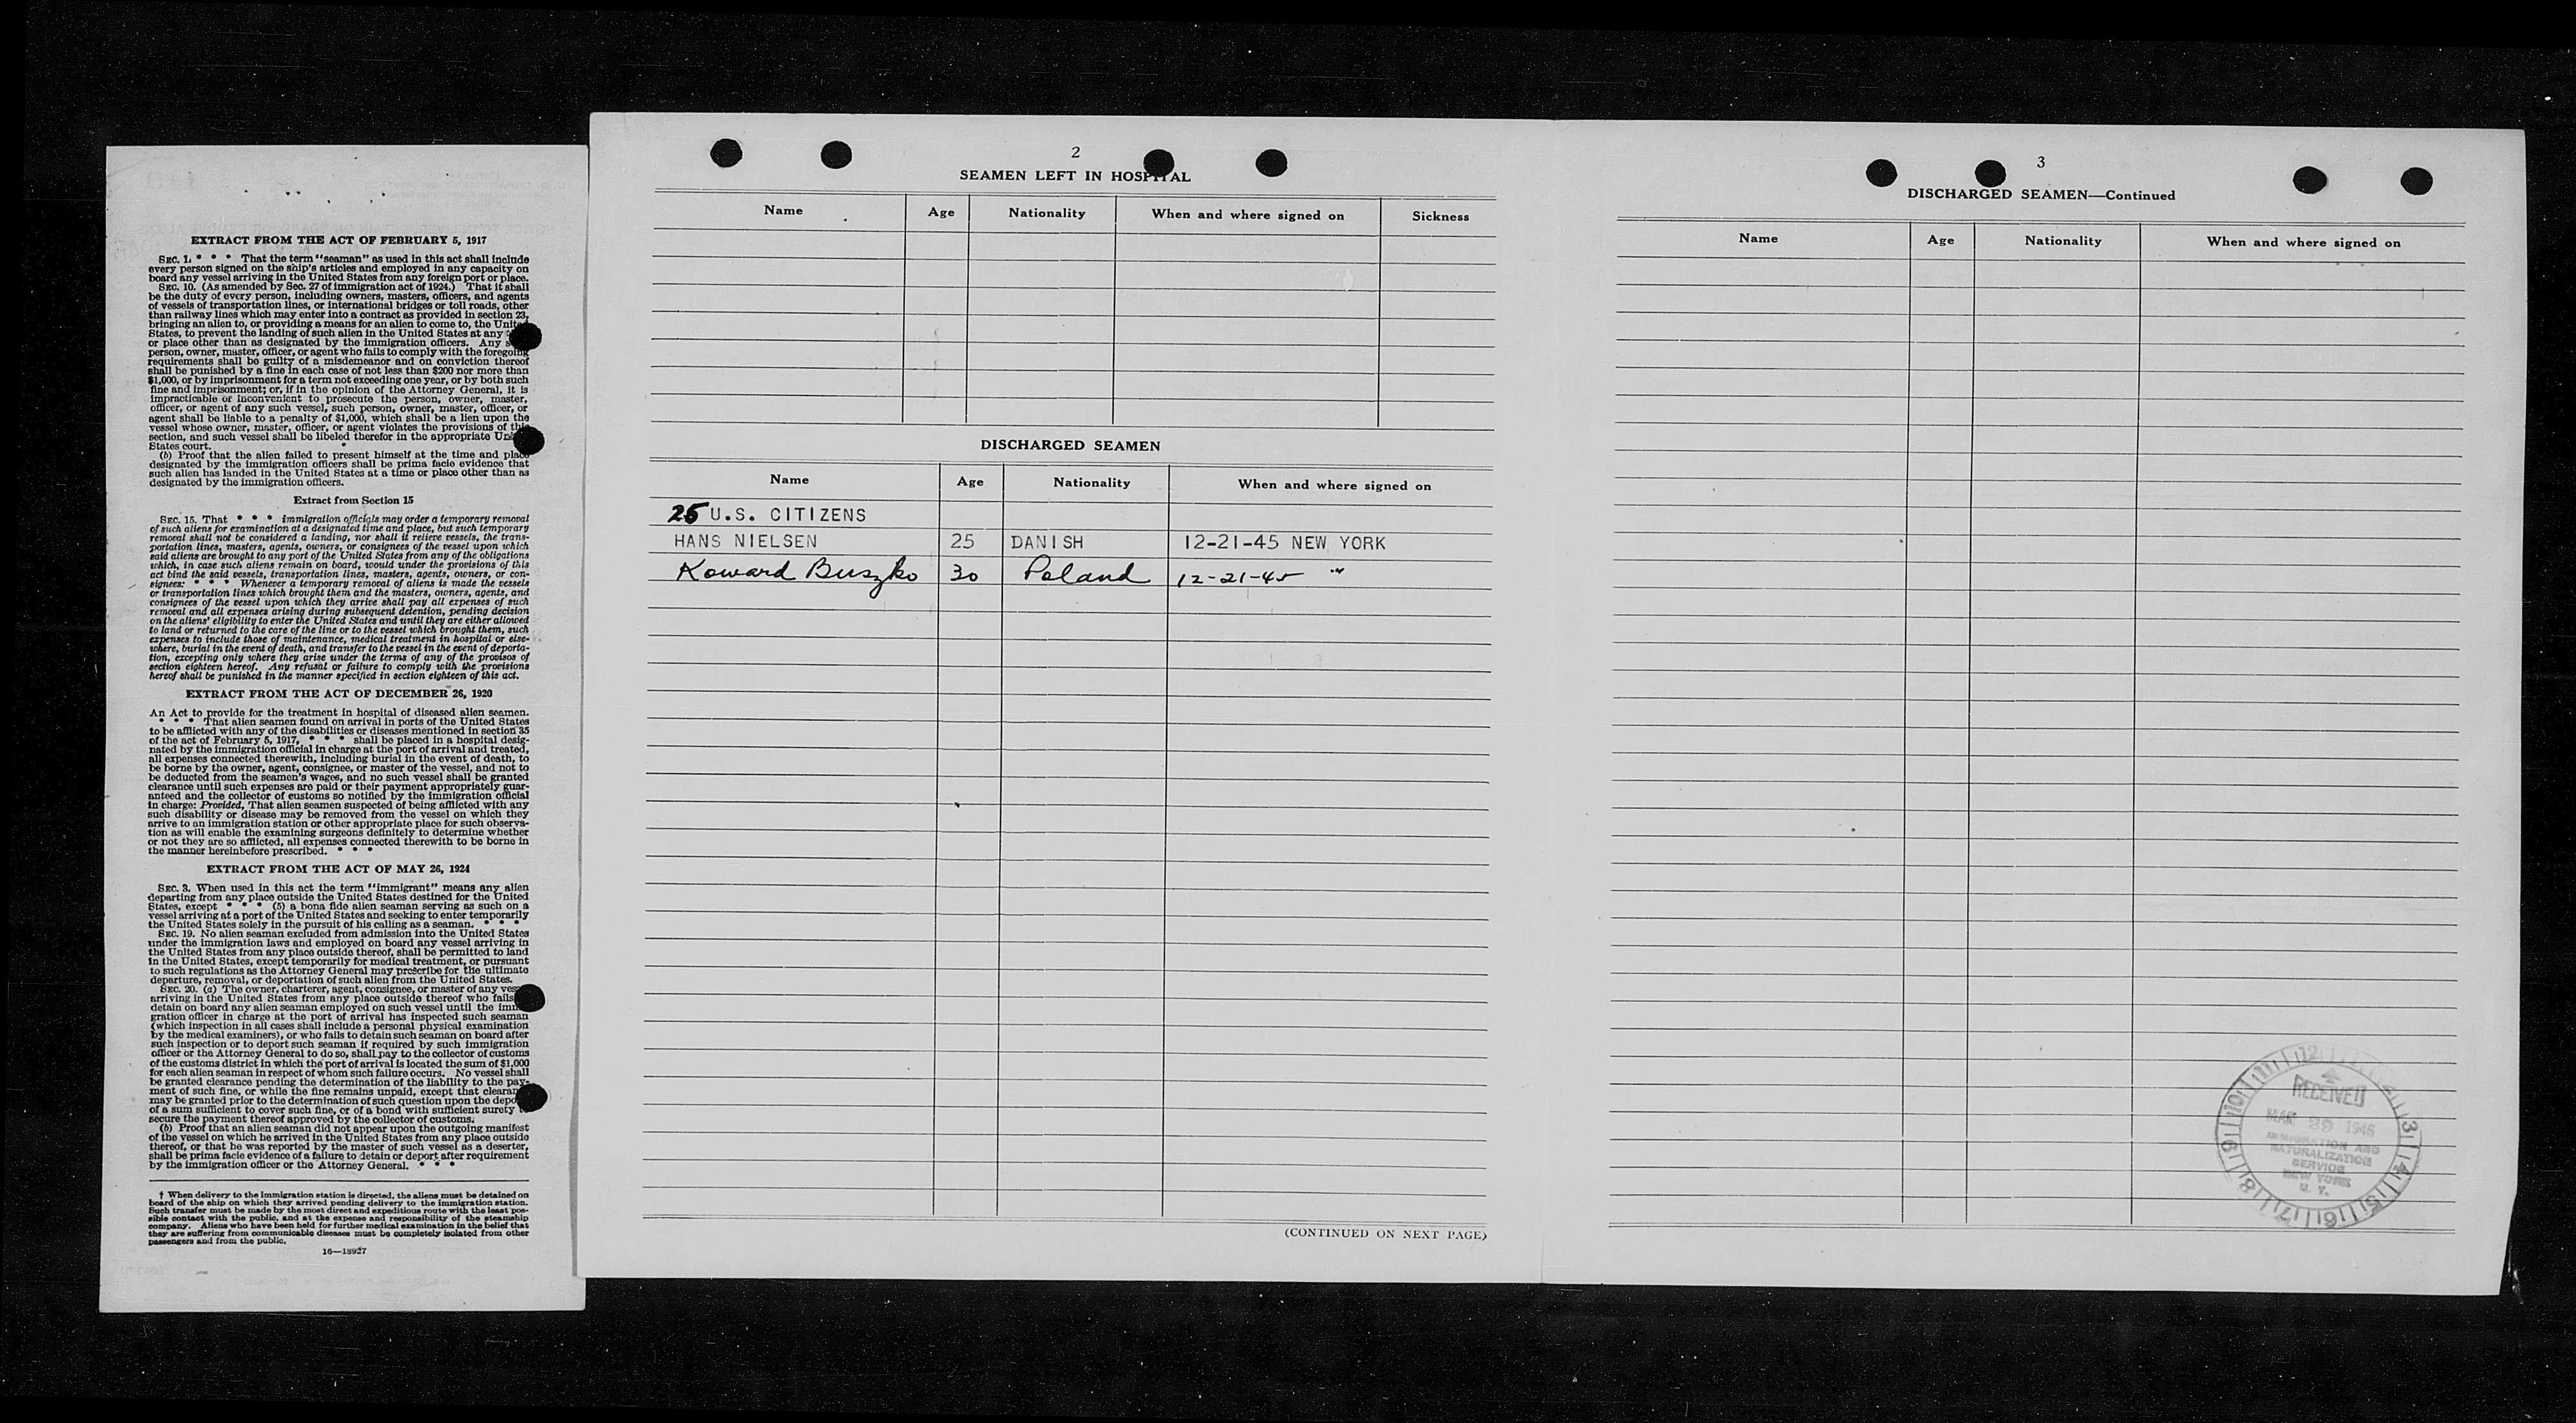 EXTRACT FROM THE ACT OF FEBRUARY 5, 1917
SEC. 1. * * * That the term "seaman" as used in this act shall include
every person signed on the ship's articles and employed in any capacity on
board any vessel arriving in the United States from any foreign port or place.
SEC. 10. (As amended by Sec. 27 of immigration act of 1924.) That it shall
be the duty of every person, including owners, masters, officers, and agents
of vessels of transportation lines, or international bridges or toll roads, other
than railway lines which may enter into a contract as provided in section 23,
bringing an alien to, or providing a means for an alien to come to, the United
States, to prevent the landing of such alien in the United States at any
or place other than as designated by the immigration officers. Any
person, owner, master, officer, or agent who fails to comply with the foregoing
requirements shall be guilty of a misdemeanor and on conviction thereof
shall be punished by a fine in each case of not less than $200 nor more than
$1,000, or by imprisonment for a term not exceeding one year, or by both such
fine and imprisonment; or, if in the opinion of the Attorney General, it is
impracticable or inconvenient to prosecute the person, owner, master,
officer, or agent of any such vessel, such person, owner, master, officer, or
agent shall be liable to a penalty of $1,000, which shall be a lien upon the
vessel whose owner, master, officer, or agent violates the provisions of this
section, and such vessel shall be libeled therefor in the appropriate
States court.
(b) Proof that the alien failed to present himself at the time and place
designated by the immigration officers shall be prima facie evidence that
such alien has landed in the United States at a time or place other than as
designated by the immigration officers.
Extract from Section 15
SEC. 15. That * * * immigration officials may order a temporary removal
of such aliens for examination at a designated time and place, but such temporary
removal shall not be considered a landing, nor shall it relieve vessels, the trans-
portation lines, masters, agents, owners, or consignees of the vessel upon which
said aliens are brought to any port of the United States from any of the obligations
which, in case such aliens remain on board, would under the provisions of this
act bind the said vessels, transportation lines, masters, agents, owners, or con-
signees: * * * Whenever a temporary removal of aliens is made the vessels
or transportation lines which brought them and the masters, owners, agents, and
consignees of the vessel upon which they arrive shall pay all expenses of such
removal and all expenses arising during subsequent detention, pending decision
on the aliens' eligibility to enter the United States and until they are either allowed
to land or returned to the care of the line or to the vessel which brought them, such
expenses to include those of maintenance, medical treatment in hospital or else-
where, burial in the event of death, and transfer to the vessel in the event of deporta-
tion, excepting only where they arise under the terms of any of the provisos of
section eighteen hereof. Any refusal or failure to comply with the provisions
hereof shall be punished in the manner specified in section eighteen of this act.
EXTRACT FROM THE ACT OF DECEMBER 26, 1920
An Act to provide for the treatment in hospital of diseased alien seamen.
* * * That alien seamen found on arrival in ports of the United States
to be afflicted with any of the disabilities or diseases mentioned in section 35
of the act of February 5, 1917, * * * shall be placed in a hospital desig-
nated by the immigration official in charge at the port of arrival and treated,
all expenses connected therewith, including burial in the event of death, to
be borne by the owner, agent, consignee, or master of the vessel, and not to
be deducted from the seamen's wages, and no such vessel shall be granted
clearance until such expenses are paid or their payment appropriately guar-
anteed and the collector of customs so notified by the immigration official
in charge: Provided, That alien seamen suspected of being afflicted with any
such disability or disease may be removed from the vessel on which they
arrive to an immigration station or other appropriate place for such observa-
tion as will enable the examining surgeons definitely to determine whether
or not they are so afflicted, all expenses connected therewith to be borne in
the manner hereinbefore prescribed. * * *
EXTRACT FROM THE ACT OF MAY 26, 1924
SEC. 3. When used in this act the term "immigrant" means any alien
departing from any place outside the United States destined for the United
States, except * * * (5) a bona fide alien seaman serving as such on a
vessel arriving at a port of the United States and seeking to enter temporarily
the United States solely in the pursuit of his calling as a seaman. * * *
SEC. 19. No alien seaman excluded from admission into the United States
under the immigration laws and employed on board any vessel arriving in
the United States from any place outside thereof, shall be permitted to land
in the United States, except temporarily for medical treatment, or pursuant
to such regulations as the Attorney General may prescribe for the ultimate
departure, removal, or deportation of such alien from the United States.
SEC. 20. (a) The owner, charterer, agent, consignee, or master of any vessel
arriving in the United States from any place outside thereof who fails
detain on board any alien seaman employed on such vessel until the immi-
gration officer in charge at the port of arrival has inspected such seaman
(which inspection in all cases shall include a personal physical examination
by the medical examiners), or who fails to detain such seaman on board after
such inspection or to deport such seaman if required by such immigration
officer or the Attorney General to do so, shall pay to the collector of customs
of the customs district in which the port of arrival is located the sum of $1,000
for each alien seaman in respect of whom such failure occurs. No vessel shall
be granted clearance pending the determination of the liability to the pay-
ment of such fine, or while the fine remains unpaid, except that clearance
may be granted prior to the determination of such question upon the deposit
of a sum sufficient to cover such fine, or of a bond with sufficient surety to
secure the payment thereof approved by the collector of customs.
(b) Proof that an alien seaman did not appear upon the outgoing manifest
of the vessel on which he arrived in the United States from any place outside
thereof, or that he was reported by the master of such vessel as a deserter,
shall be prima facie evidence of a failure to detain or deport after requirement
by the immigration officer or the Attorney General. * * *
† When delivery to the immigration station is directed, the aliens must be detained on
board of the ship on which they arrived pending delivery to the immigration station.
Such transfer must be made by the most direct and expeditious route with the least pos-
sible contact with the public, and at the expense and responsibility of the steamship
company. Aliens who have been held for further medical examination in the belief that
they are suffering from communicable diseases must be completely isolated from other
passengers and from the public.
16—18927
2
SEAMEN LEFT IN HOSPITAL
Name Age Nationality When and where signed on Sickness
DISCHARGED SEAMEN
Name Age Nationality When and where signed on
25 U.S. CITIZENS
HANS NIELSEN 25 DANISH 12-21-45 NEW YORK
Koward Buszko 30 Poland 12-21-45 "
(CONTINUED ON NEXT PAGE)
3
DISCHARGED SEAMEN—Continued
Name Age Nationality When and where signed on
RECEIVED
MAR 29 1946
IMMIGRATION AND
NATURALIZATION
SERVICE
NEW YORK
N. Y.